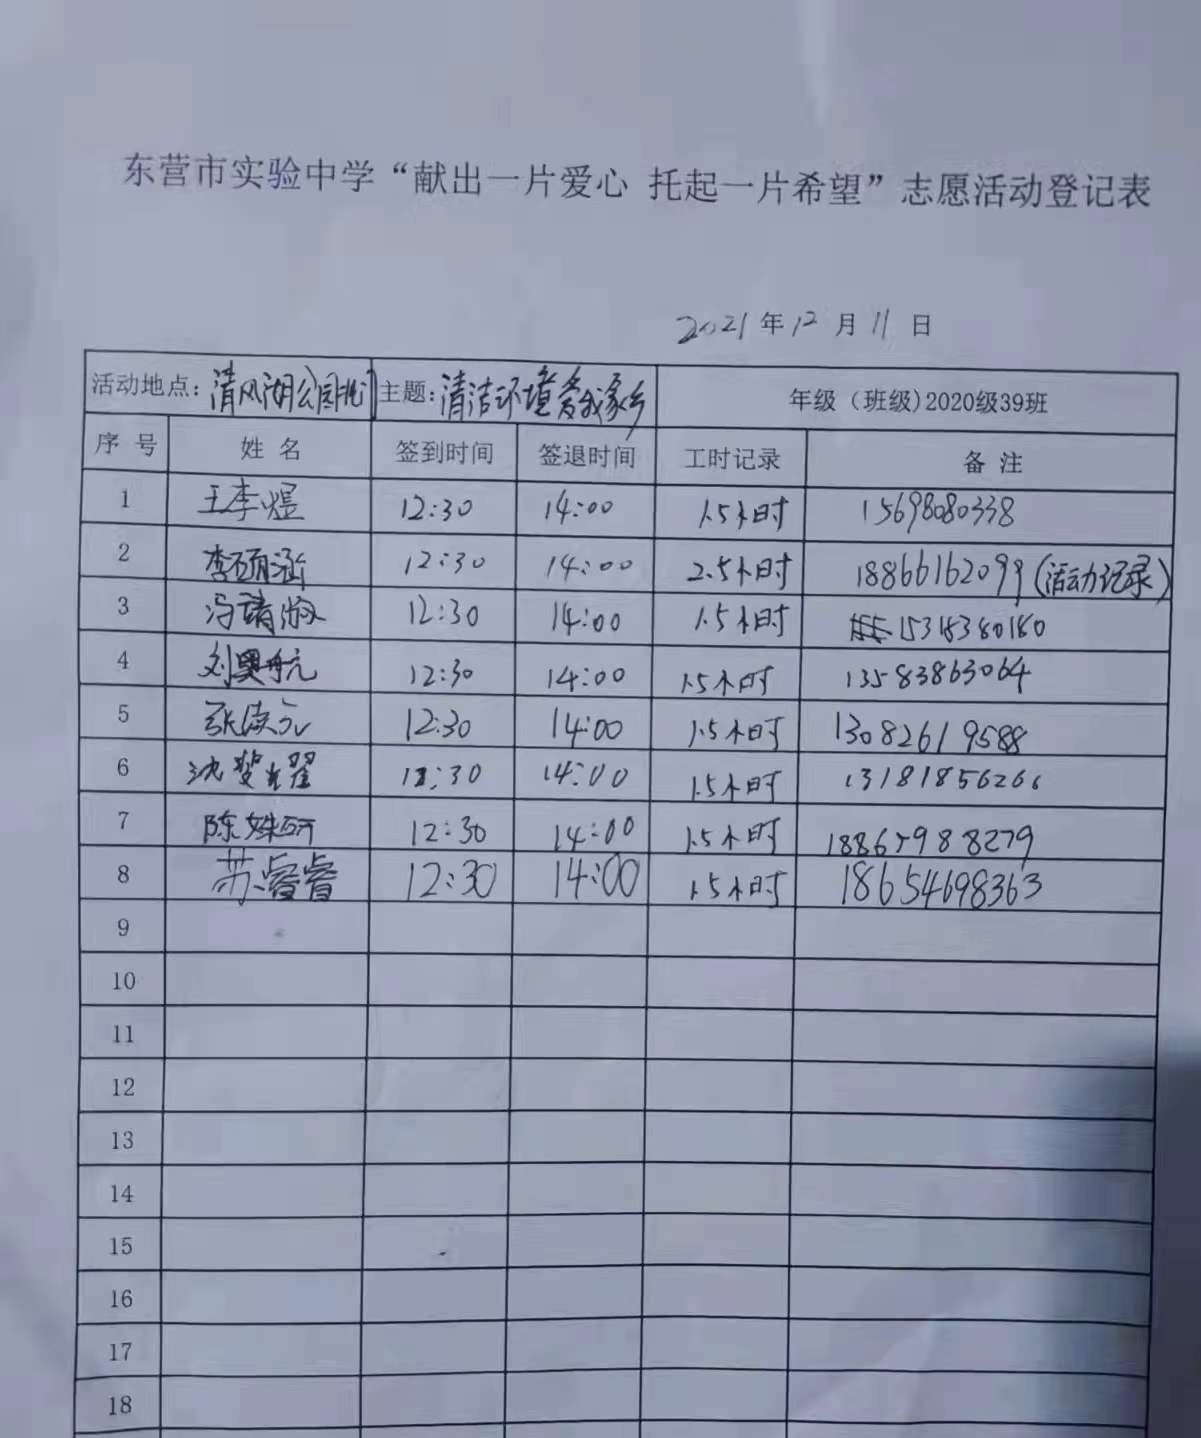 东营市实验中学“献出一片爱心 托起一片希望”志愿活动登记表
2021年12月11日
活动地点：清风湖公园北门 主题：清洁环境爱我家乡 年级（班级)2020级39班
序号 姓名 签到时间 签退时间 工时记录 备注
1 王李煜 12:30 14:00 1.5小时 15698080338
2 李硕涵 12:30 14:00 2.5小时 18866162099(活动记录)
3 冯靖淑 12:30 14:00 1.5小时 15318380180
4 刘奥航 12:30 14:00 1.5小时 13583863064
5 12:30 14:00 1.5小时 13082619588
6 12:30 14:00 1.5小时 13181856266
7 陈姝研 12:30 14:00 1.5小时 18865988279
8 苏睿睿 12:30 14:00 1.5小时 18654698363
9
10
11
12
13
14
15
16
17
18